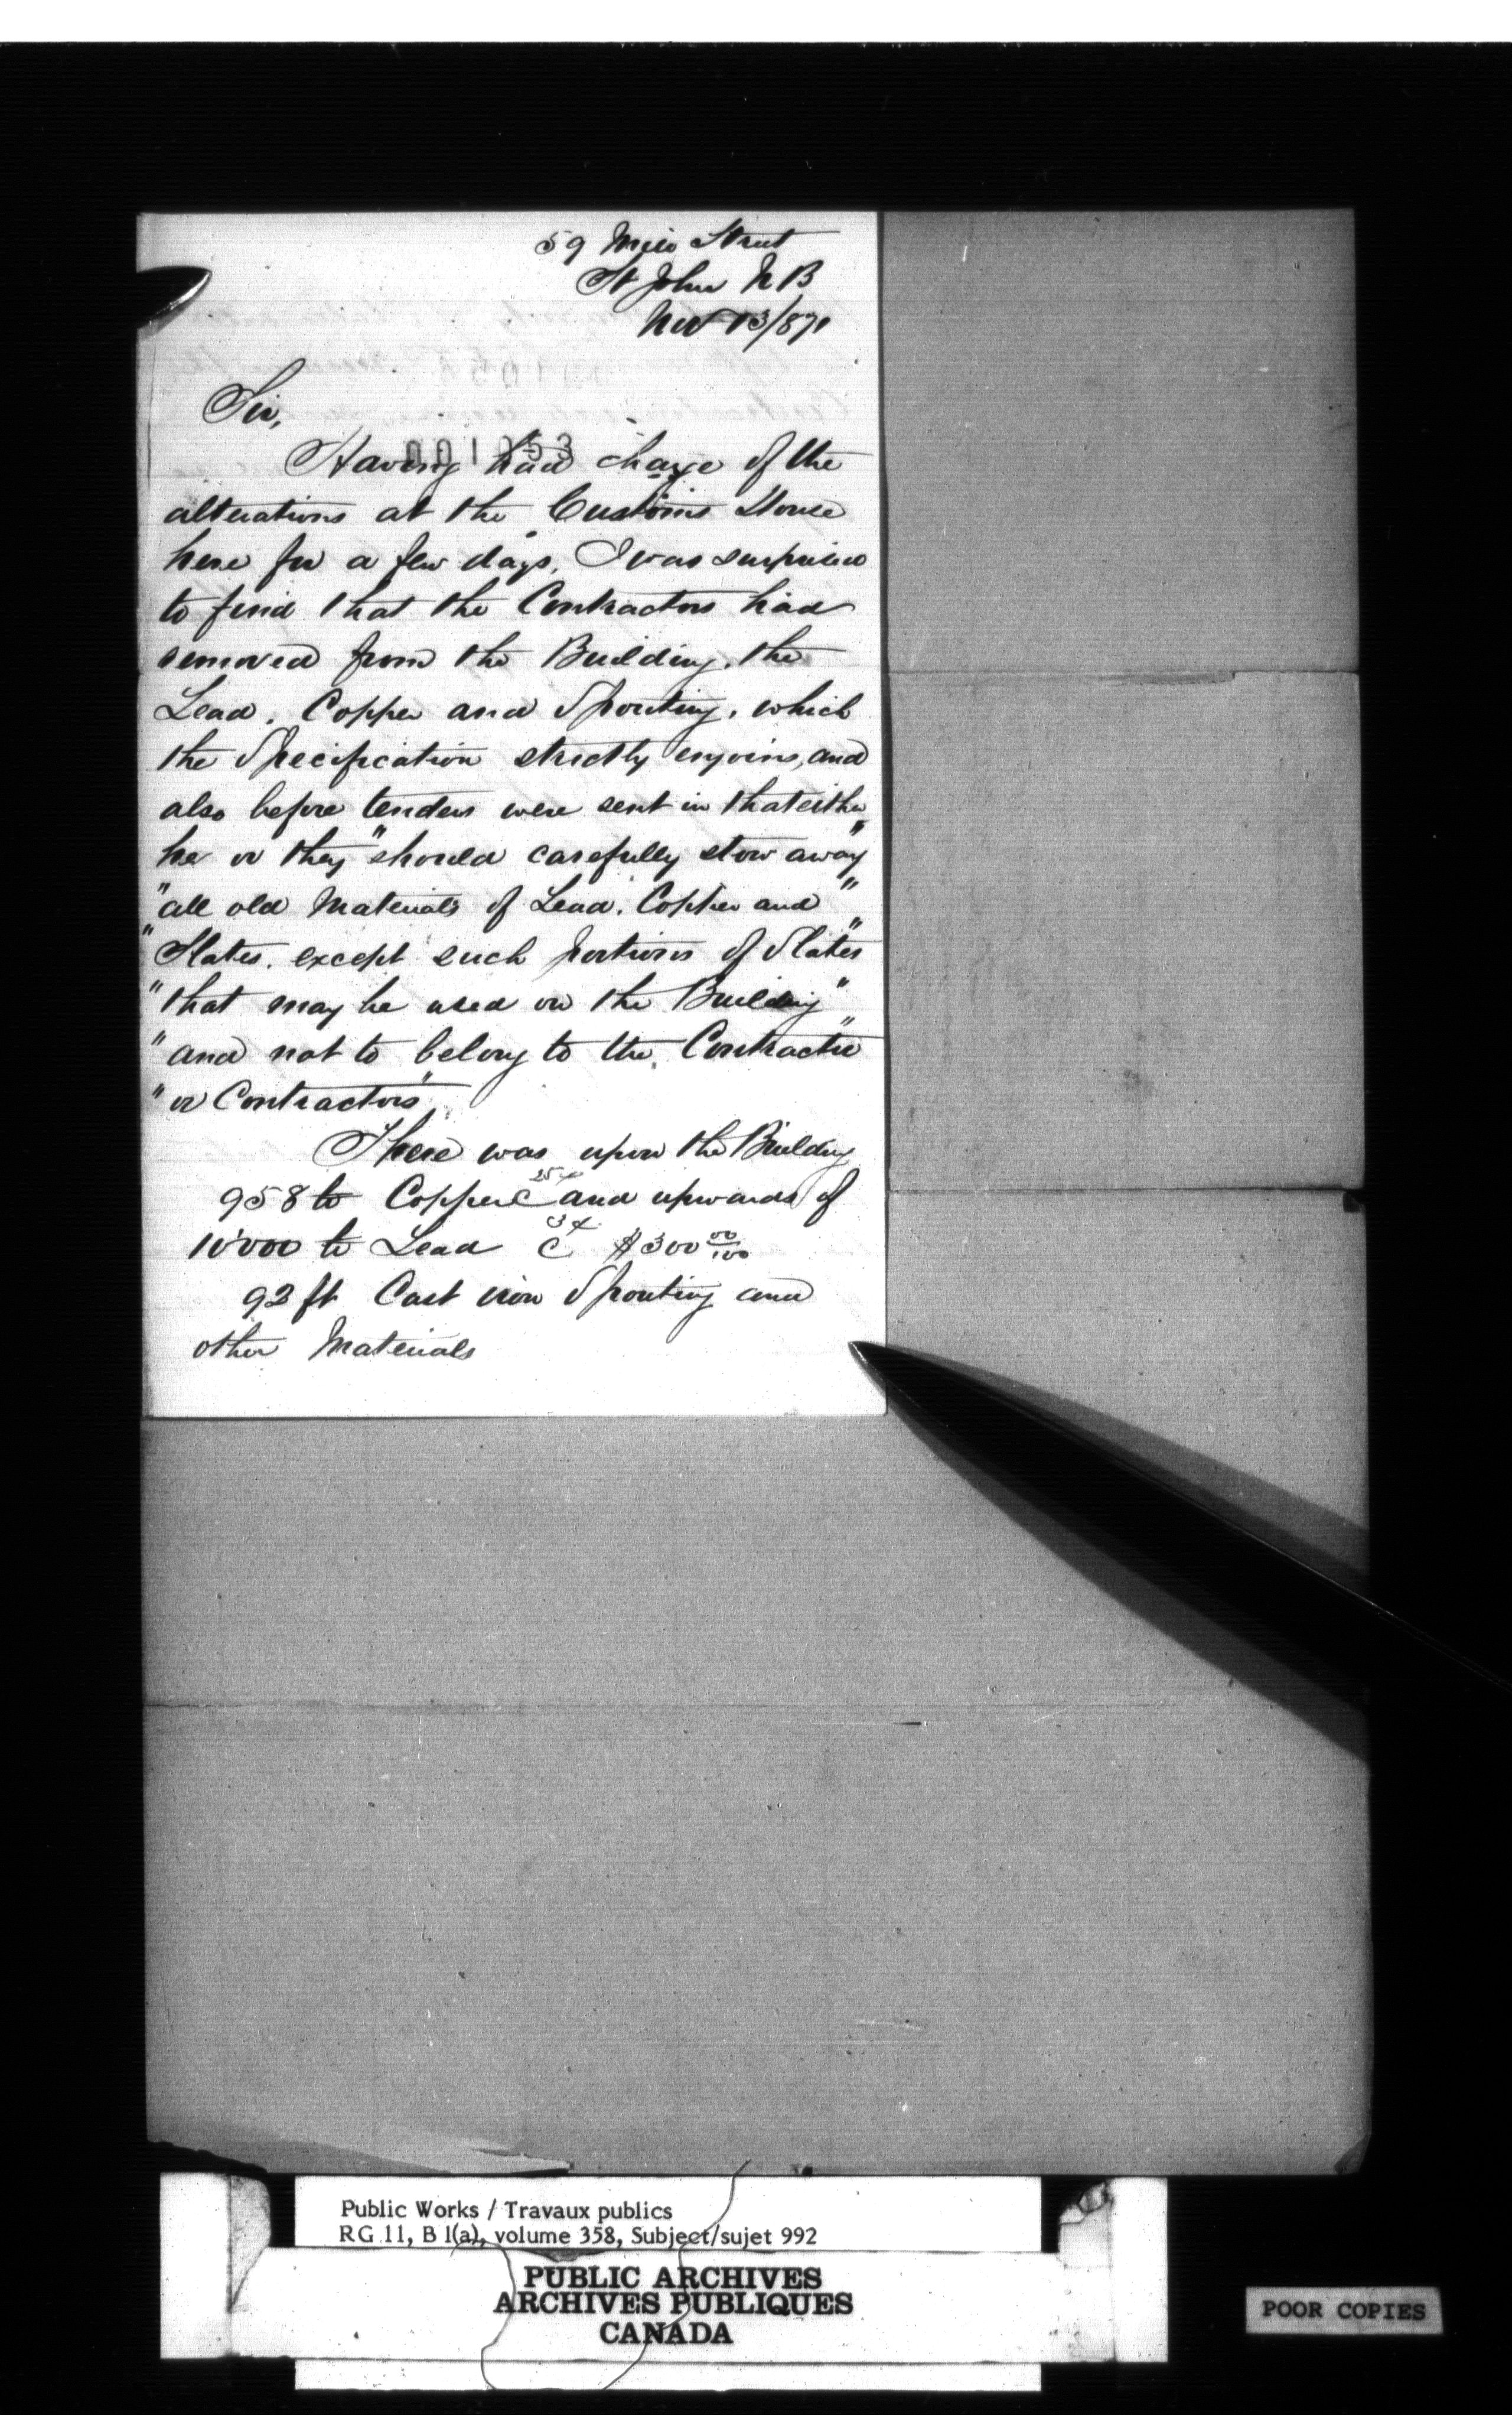 59 Street
St John N B
Nov 13/871
Sir,
001053
Having had charge of the
alterations at the Customs House
here for a few days, I was surprised
to find that the Contractors had
removed from the Building, the
Lead, Copper and Spouting, which
the Specification strictly enjoins, and
also before tenders were sent in that either
he or they "should carefully stow away"
"all old Materials of Lead, Copper and"
"Slates, except such portions of Slates"
"that may be used on the Building"
"and not to belong to the Contractor"
"or Contractors".
There was upon the Building
958 lb Copper @ 25¢ and upwards of
10'000 lb Lead @ 3¢ $300 00/100
92 ft Cast iron Spouting and
other Materials
Public Works / Travaux publics
RG 11, B 1(a), volume 358, Subject/sujet 992
PUBLIC ARCHIVES
ARCHIVES PUBLIQUES
CANADA
POOR COPIES